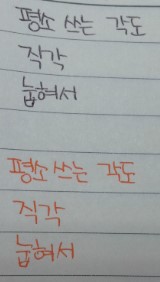 평소 쓰는 각도
직각
눕혀서
평소 쓰는 각도
직각
눕혀서